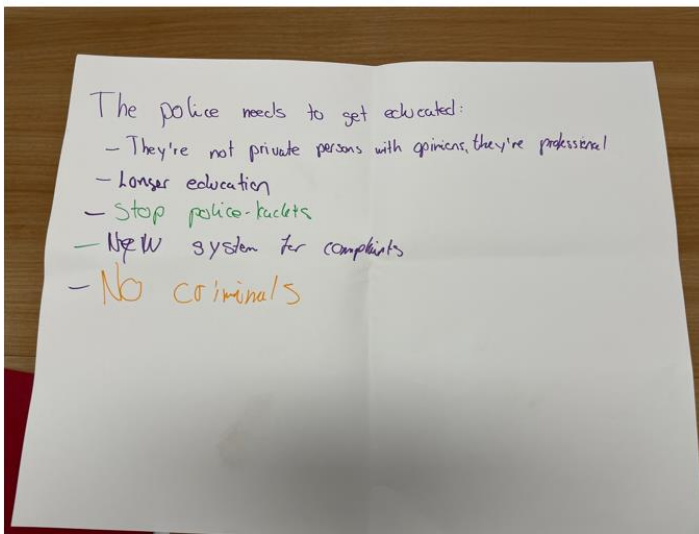 The police needs to get educated:
- They're not private persons with opinions, they're professional
- Longer education
- Stop police-kadets
- NEW system for complaints
- No criminals